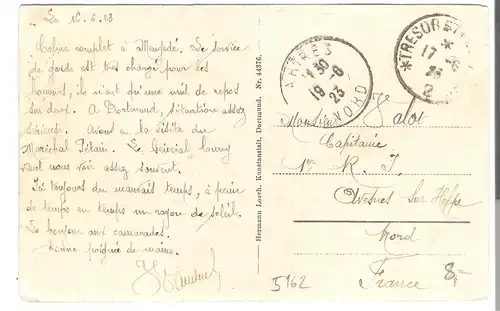 Le 16.6.23
Calme complet à Mengede. Le service
de garde est très chargé pour les
hommes, ils n'ont qu'une nuit de repos
sur deux. A Dortmund, situation assez
sérieuse. Avons eu la visite du
Maréchal Pétain. Le Général
vient nous voir assez souvent.
Ici toujours du mauvais temps, à peine
de temps en temps un rayon de soleil.
Le bonjour aux camarades.
Bonne poignée de mains.
Hermann Lorch, Kunstanstalt, Dortmund. Nr. 44376.
NORD
19 -6
23
*TRESOR ET
17 -6
23
2
Monsieur Jalot
Capitaine
1er R. I.
Avesnes sur Helpe
Nord
France
5162
8,-